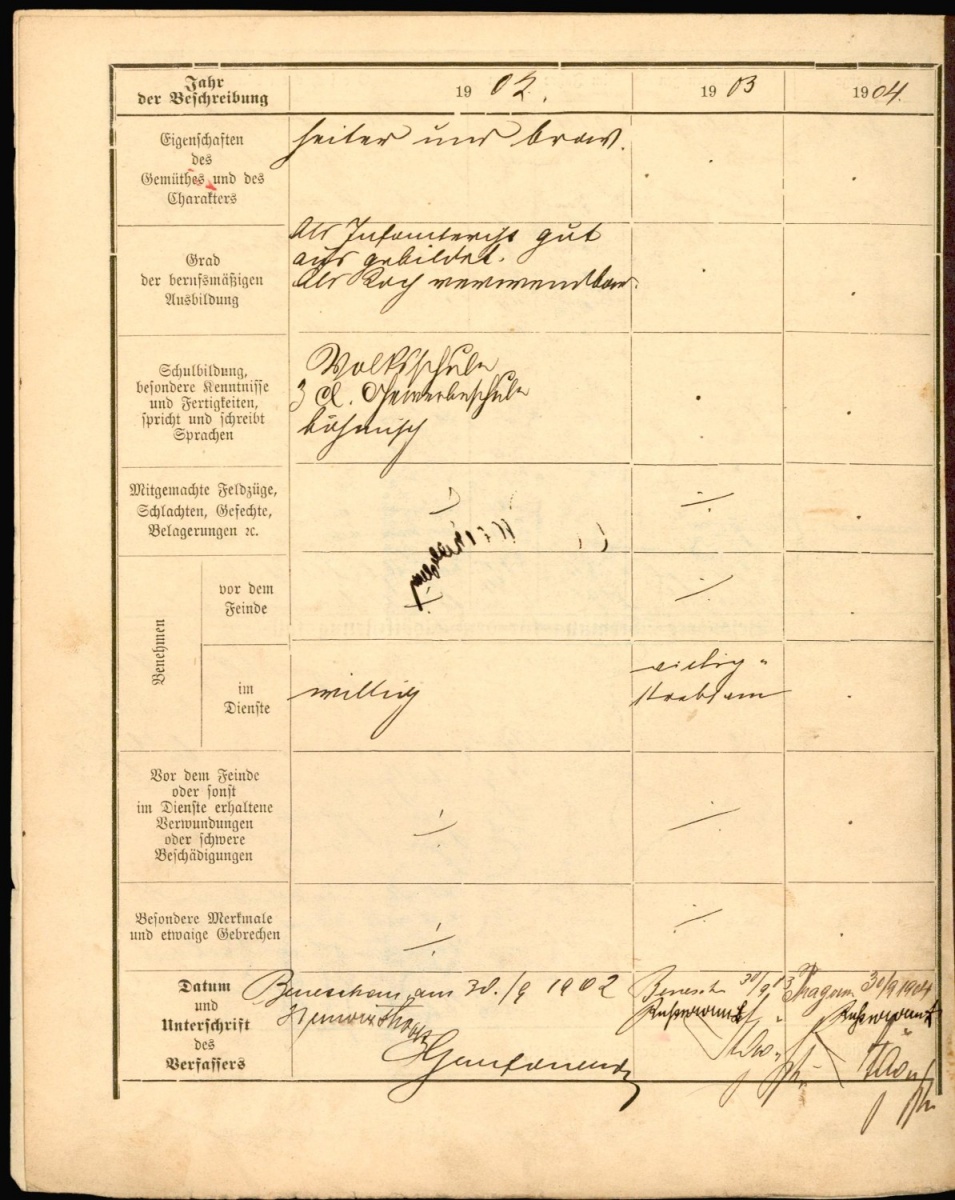 Jahr
der Beschreibung
1902.
1903
1904.
Eigenschaften
des
Gemüthes und des
Charakters
heiter und brav.
Grad
der berufsmäßigen
Ausbildung
Als Infanterist gut
ausgebildet.
Als Koch verwendbar.
Schulbildung,
besondere Kenntnisse
und Fertigkeiten,
spricht und schreibt
Sprachen
Volksschule
3 Cl. Gewerbeschule
böhmisch
Mitgemachte Feldzüge,
Schlachten, Gefechte,
Belagerungen ꝛc.
Benehmen
vor dem
Feinde
im
Dienste
willig
willig
strebsam
Vor dem Feinde
oder sonst
im Dienste erhaltene
Verwundungen
oder schwere
Beschädigungen
Besondere Merkmale
und etwaige Gebrechen
Datum
und
Unterschrift
des
Verfassers
Beneschau, am 30./9 1902
Benesch 30/9 03
Prag am 30/9 1904